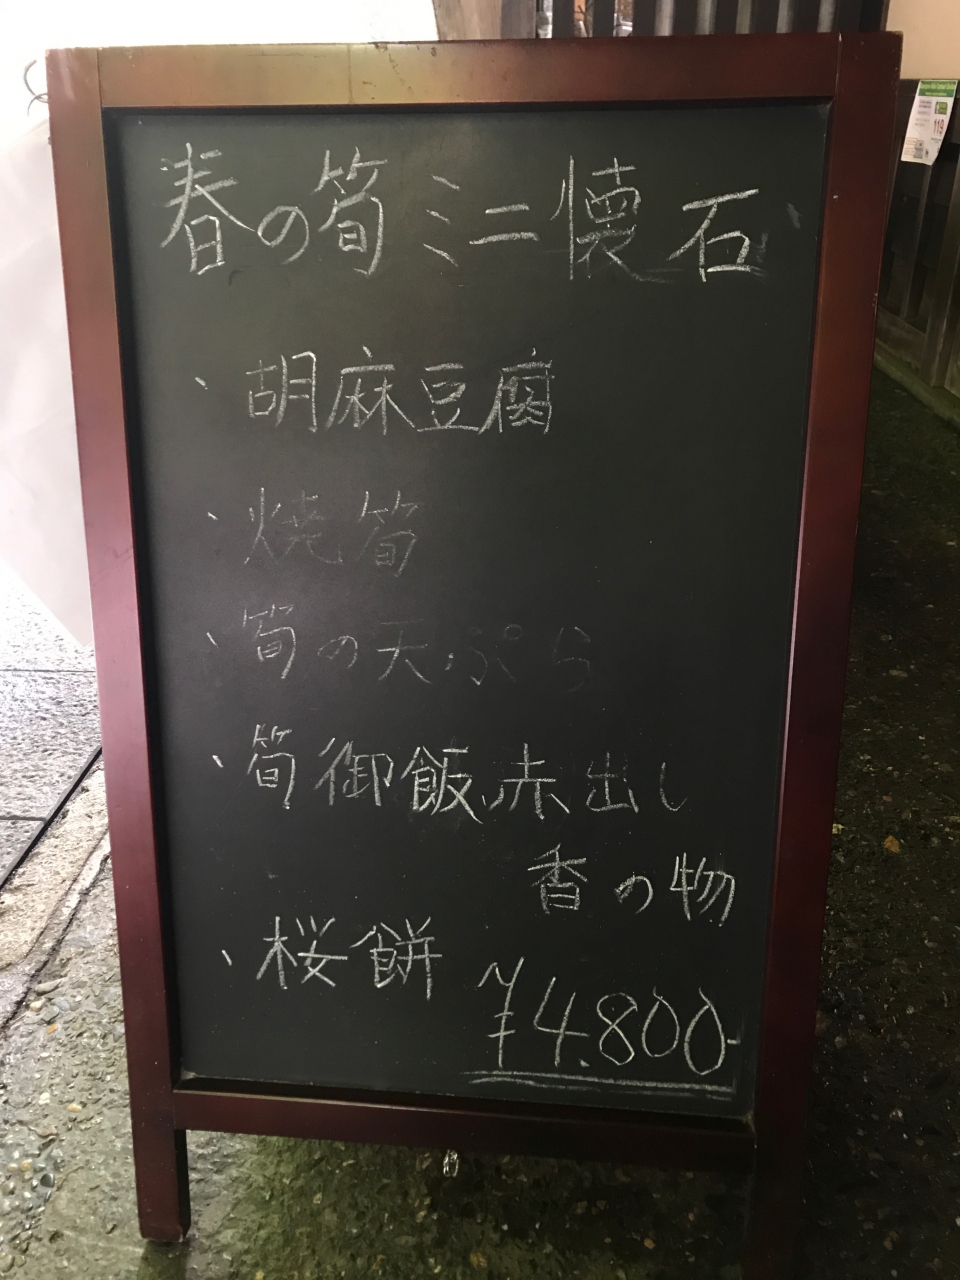 春の筍ミニ懐石
、胡麻豆腐
、焼筍
、筍の天ぷら
、筍御飯、赤出し
香の物
、桜餅
¥4.800-
119